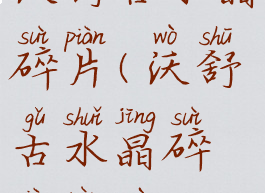 suì piàn wò shū
碎片(沃舒
gǔ shuǐ jīng suì
古水晶碎